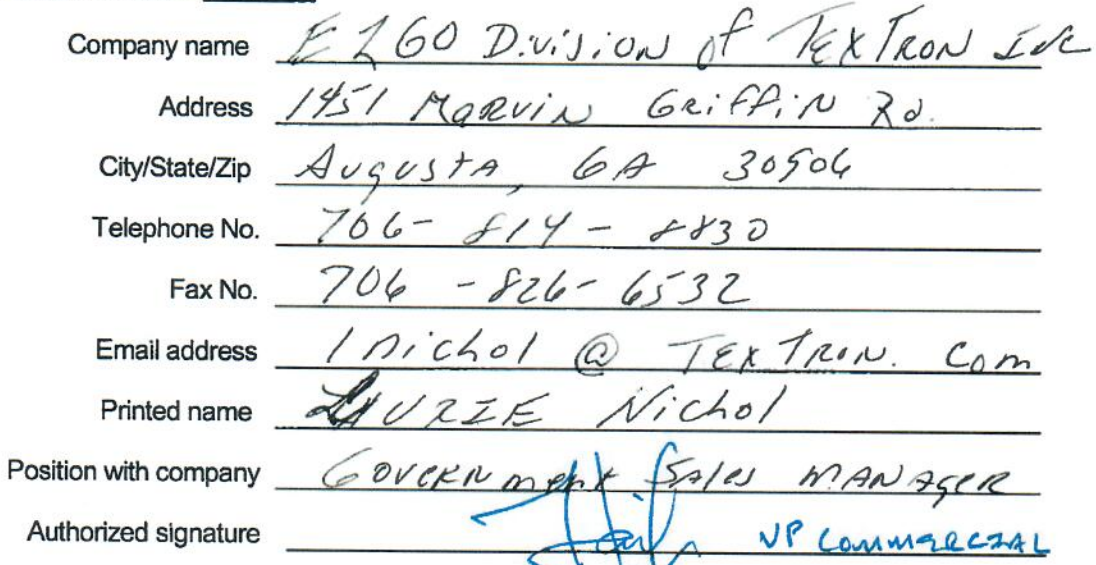 Company name EZGO Division of TEXTRON INC
Address 1451 MARVIN GRiffiN Rd.
City/State/Zip AugustA, GA 30906
Telephone No. 706-814-8830
Fax No. 706-826-6532
Email address lnichol@TEXTRON.Com
Printed name LAURIE Nichol
Position with company GOVERNment SAles MANAGER
Authorized signature VP COMMERCIAL